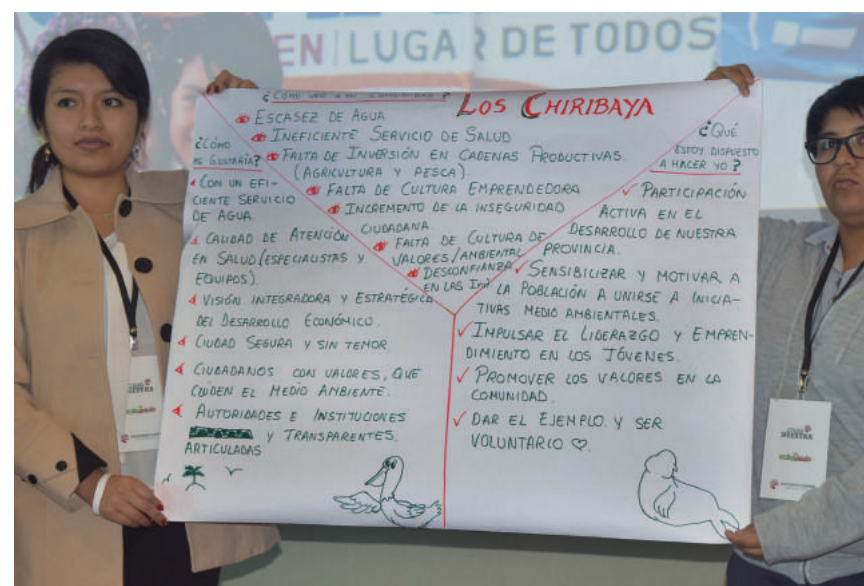 EN LUGAR DE TODOS
LOS CHIRIBAYA
¿CÓMO VEO A MI COMUNIDAD?
ESCASEZ DE AGUA
INEFICIENTE SERVICIO DE SALUD
FALTA DE INVERSIÓN EN CADENAS PRODUCTIVAS.
(AGRICULTURA Y PESCA)
FALTA DE CULTURA EMPRENDEDORA
INCREMENTO DE LA INSEGURIDAD
CIUDADANA
FALTA DE CULTURA DE
VALORES/AMBIENTAL
DESCONFIANZA
EN LAS
¿CÓMO
ME GUSTARÍA?
CON UN EFI-
CIENTE SERVICIO
DE AGUA.
CALIDAD DE ATENCIÓN
EN SALUD (ESPECIALISTAS Y
EQUIPOS).
VISIÓN INTEGRADORA Y ESTRATÉGICA
DEL DESARROLLO ECONÓMICO.
CIUDAD SEGURA Y SIN TEMOR.
CIUDADANOS CON VALORES, QUE
CUIDEN EL MEDIO AMBIENTE.
AUTORIDADES E INSTITUCIONES
Y TRANSPARENTES.
ARTICULADAS
¿QUÉ
ESTOY DISPUESTO
A HACER YO?
✓ PARTICIPACIÓN
ACTIVA EN EL
DESARROLLO DE NUESTRA
PROVINCIA.
✓ SENSIBILIZAR Y MOTIVAR A
LA POBLACIÓN A UNIRSE A INICIA-
TIVAS MEDIO AMBIENTALES.
✓ IMPULSAR EL LIDERAZGO Y EMPREN-
DIMIENTO EN LOS JÓVENES.
✓ PROMOVER LOS VALORES EN LA
COMUNIDAD.
✓ DAR EL EJEMPLO Y SER
VOLUNTARIO ♡.
NUESTRA
NUESTRA